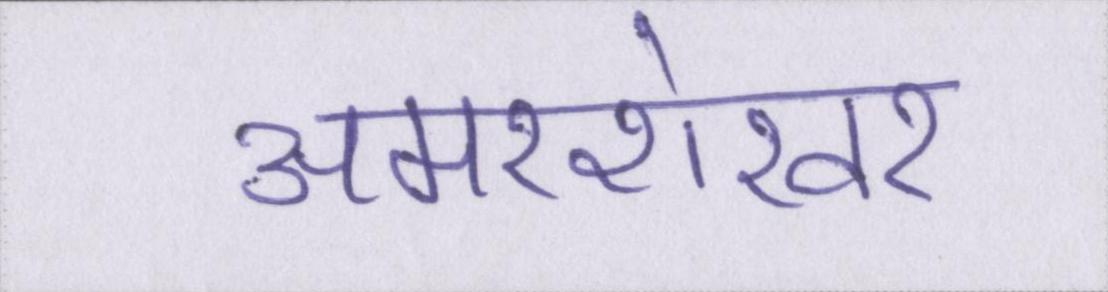 अमरशेखर